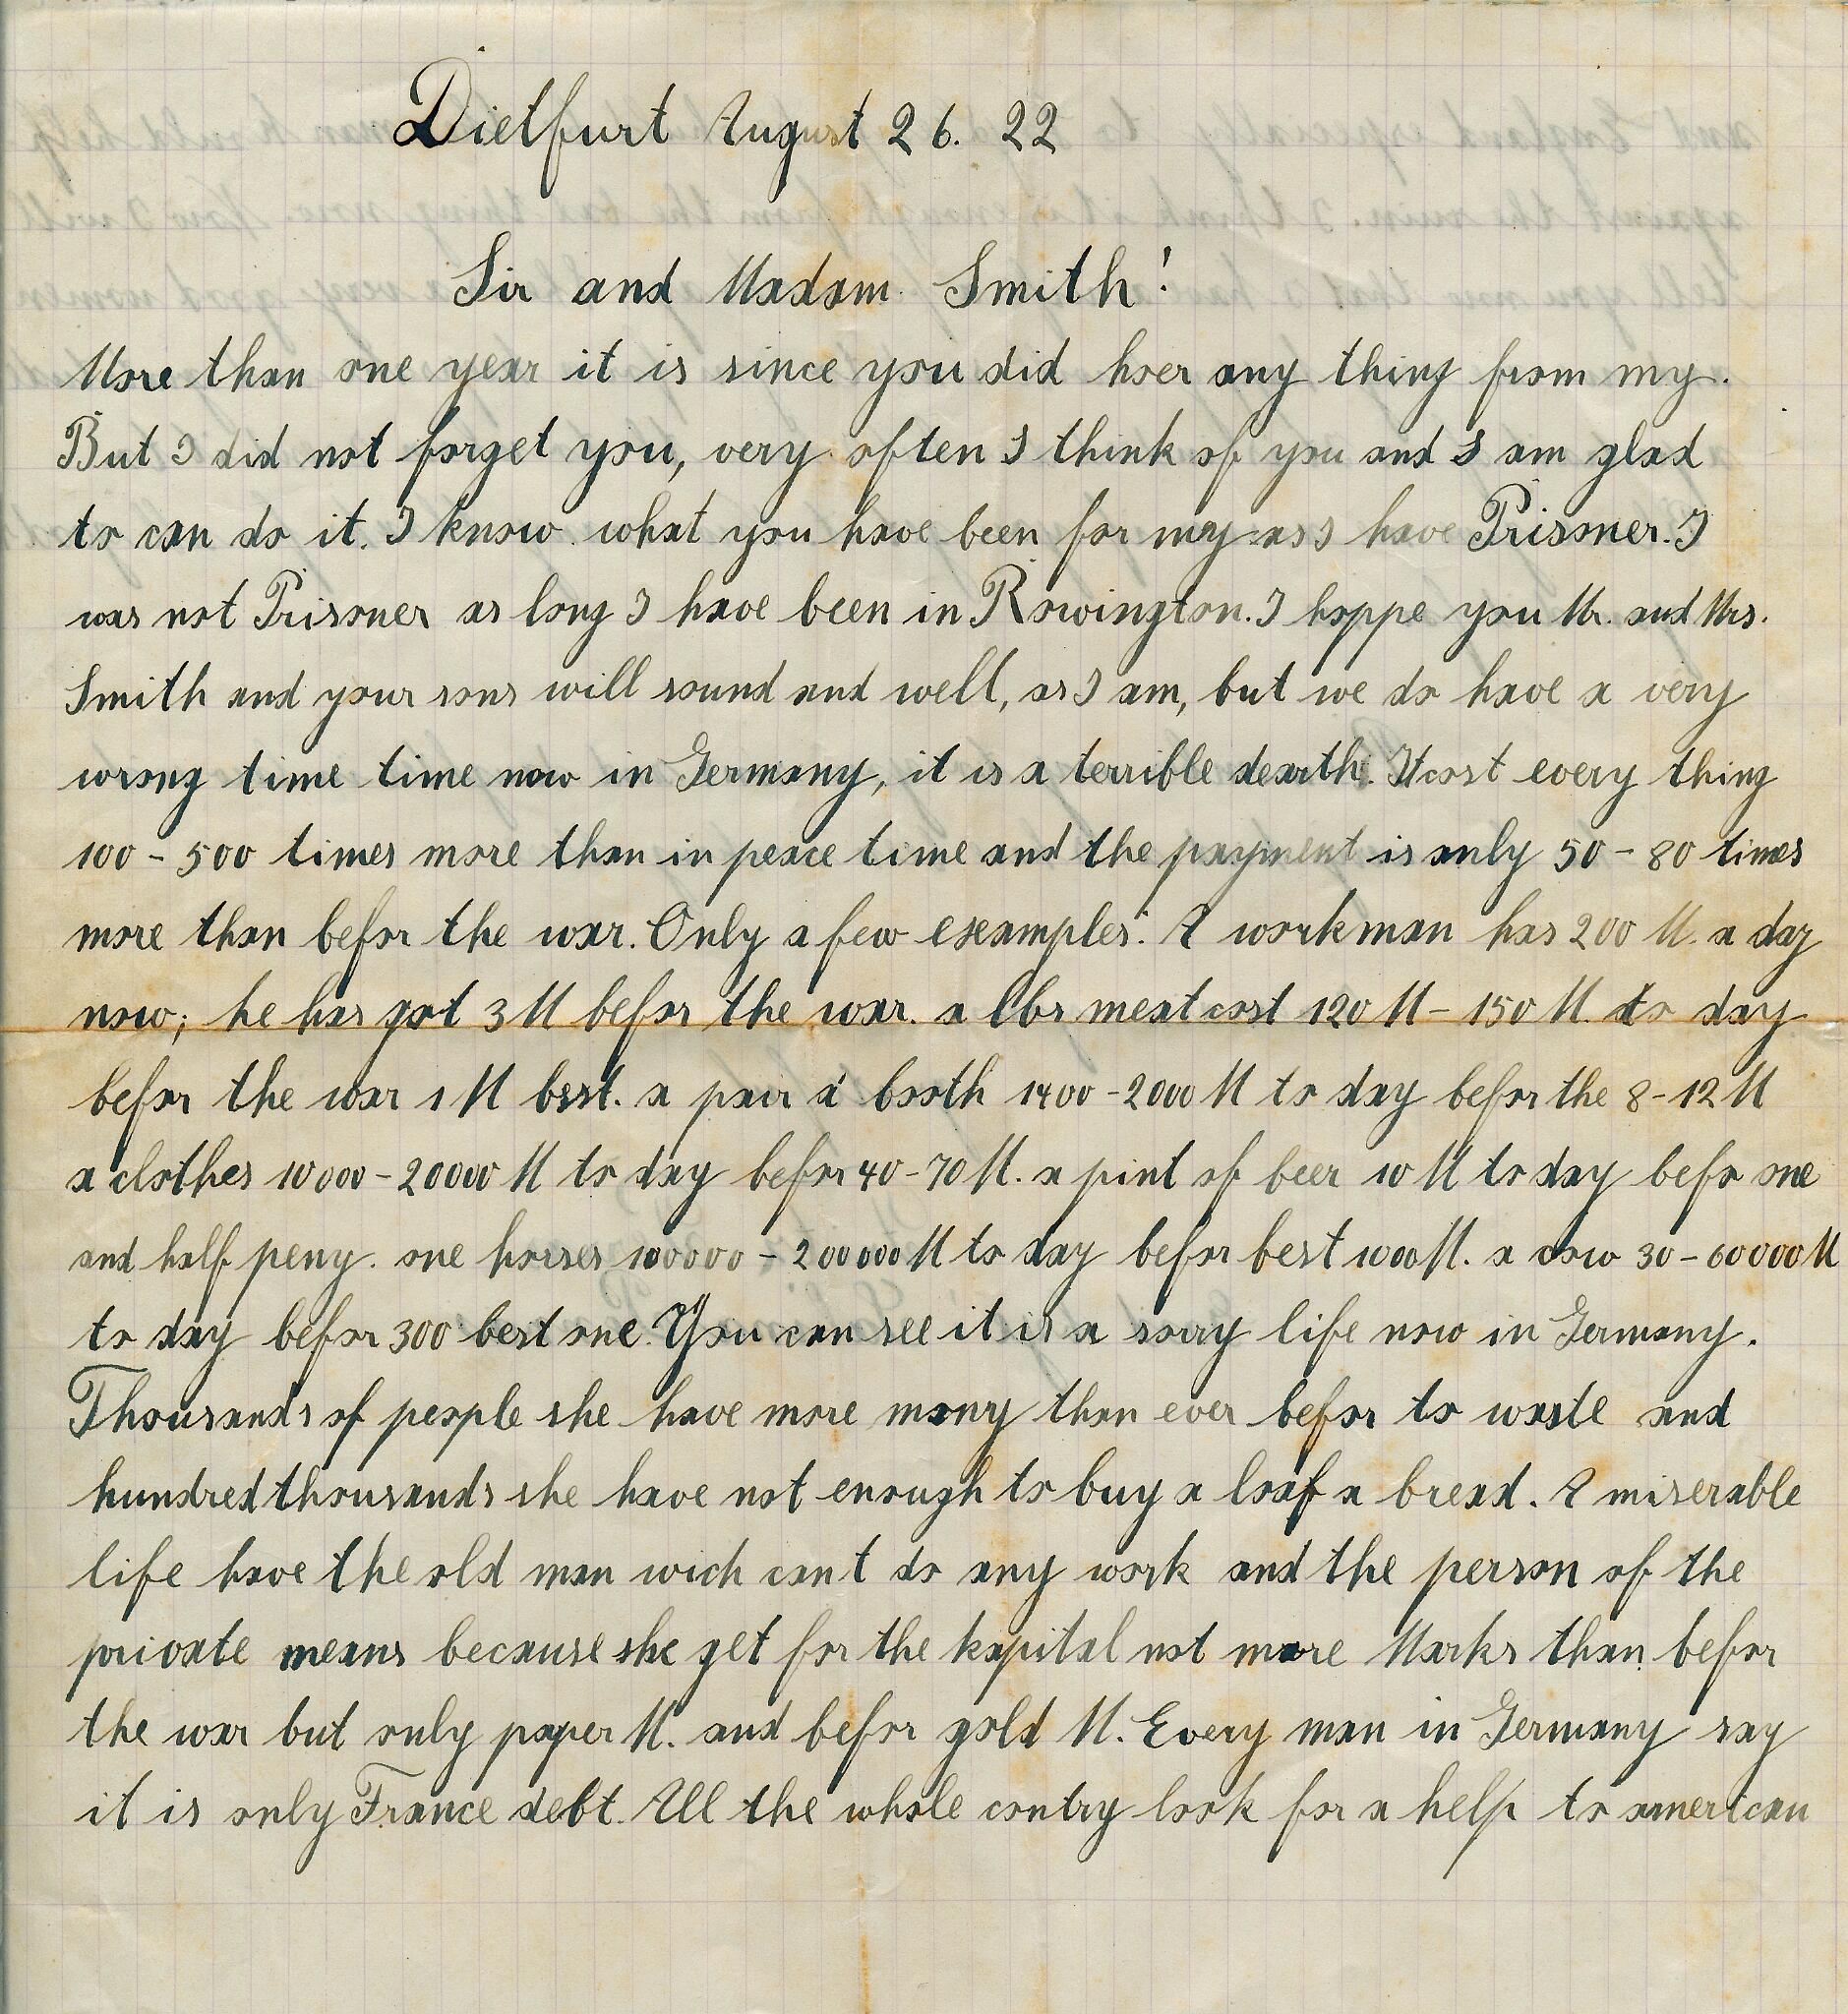 Dietfurt August 26. 22
Sir and Madam Smith!
More than one year it is since you did hoer any thing from my.
But I did not forget you, very often I think of you and I am glad
to can do it. I know what you have been for my as I have Prisoner. I
was not Prisoner as long I have been in Rowington. I hoppe you Mr. and Mrs.
Smith and your sons will sound and well, as I am, but we do have a very
wrong time time now in Germany, it is a terrible dearth. It cost every thing
100 - 500 times more than in peace time and the payment is only 50 - 80 times
more than befor the war. Only a few exsamples: A workman has 200 M. a day
now; he has got 3 M befor the war. a lbs meat cost 120 M - 150 M. to day
befor the war 1 M best. a pair a booth 1400 - 2000 M to day befor the 8 - 12 M
a clothes 10000 - 20000 M to day befor 40 - 70 M. a pint of beer 10 M to day befo one
and half peny. one horses 100000 - 200000 M to day befor best 1000 M. a cow 30 - 60000 M
to day befor 300 best one. You can see it is a sorry life now in Germany.
Thousands of people she have more mony than ever befor to waste and
hundredthousands she have not enough to buy a loaf a bread. A miserable
life have the old man wich cant do any work and the person of the
private means because she get for the kapital not more Marks than befor
the war but only paper M. and befor gold M. Every man in Germany say
it is only France debt. All the whole contry look for a help to american